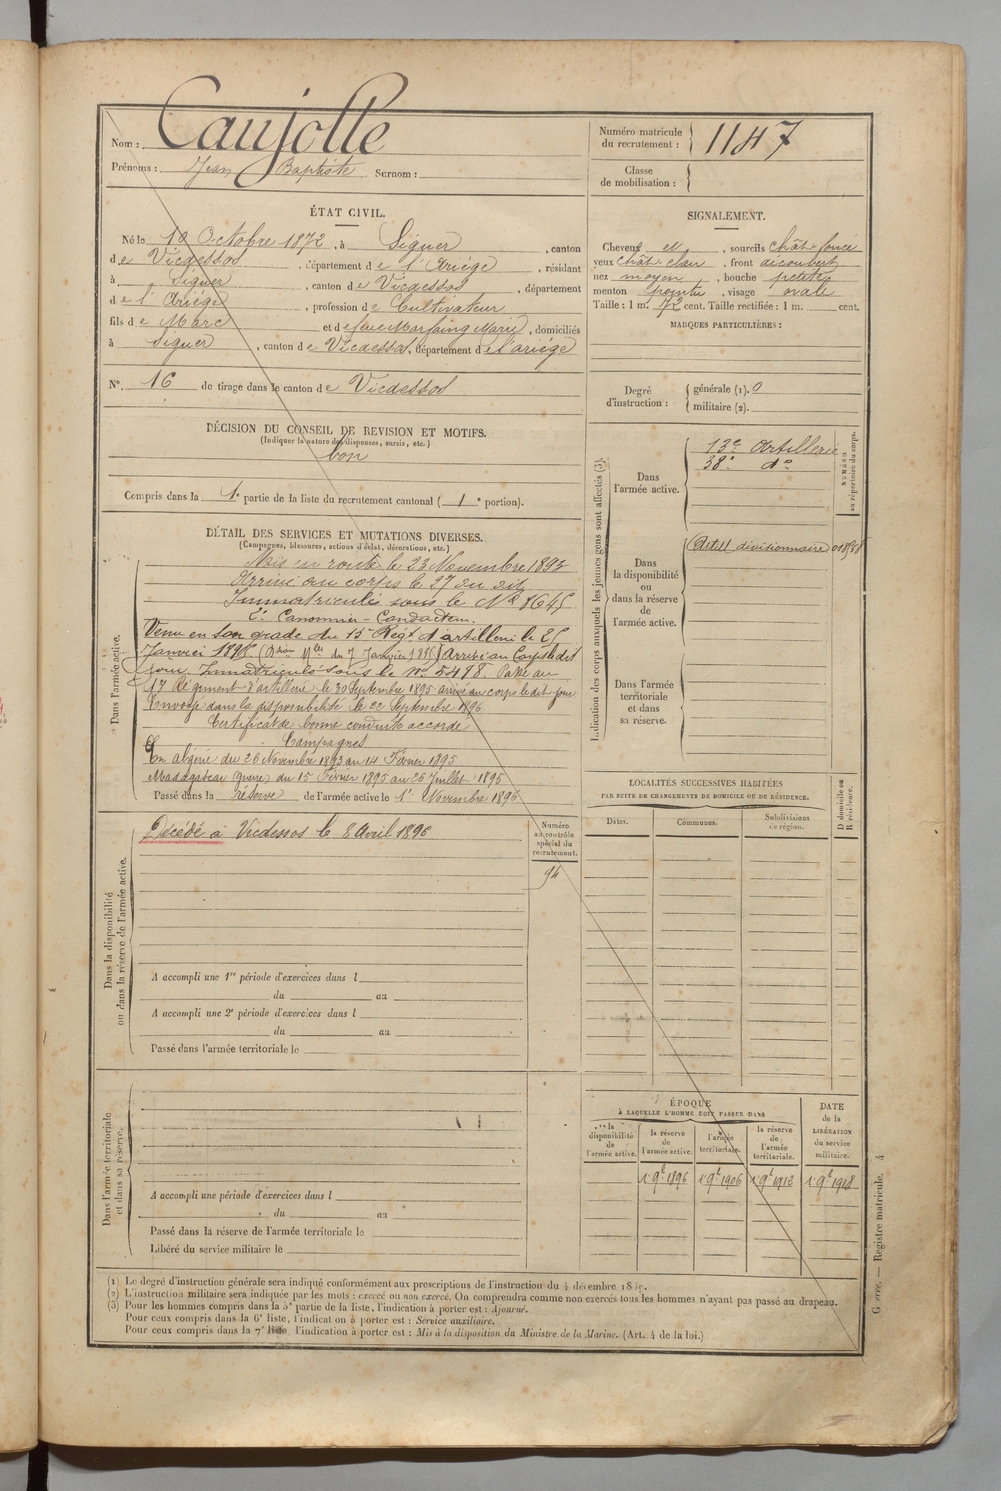 Nom : Caujolle
Prénoms : Jean Baptiste Surnom :
Numéro matricule du recrutement : 1147
Classe de mobilisation :
ÉTAT CIVIL.
Né le 10 Octobre 1872, à Siguer, canton
de Vicdessos, département de l'Ariége, résidant
à Siguer, canton de Vicdessos, département
de l'Ariége, profession de Cultivateur
fils de Marc et de feue Marfaing Marie, domiciliés
à Siguer, canton de Vicdessos, département de l'ariége
N°. 16 de tirage dans le canton de Vicdessos
SIGNALEMENT.
Cheveux et, sourcils chât. foncé
yeux chât clair, front découvert
nez moyen, bouche petite
menton pointu, visage ovale
Taille : 1 m. 72 cent. Taille rectifiée : 1 m. cent.
MARQUES PARTICULIÈRES :
Degré d'instruction : générale (1). 0
militaire (2).
DÉCISION DU CONSEIL DE REVISION ET MOTIFS.
(Indiquer la nature des dispenses, sursis, etc.)
bon
Compris dans la 1e partie de la liste du recrutement cantonal (1e portion).
DÉTAIL DES SERVICES ET MUTATIONS DIVERSES.
(Campagnes, blessures, actions d'éclat, décorations, etc.)
Dans l'armée active.
Mis en route le 23 Novembre 1893
Arrivé au corps le 27 du dit
Immatriculé sous le N° 8645
2e Canonnier-Conducteur.
Venu en son grade du 13e Régt d'artillerie le 25
Janvier 1895 (Don Mlle du 7 Janvier 1895) arrivé au Corps le dit
jour, Immatriculé sous le no 5498. Passé au
17 Régiment d'artillerie le 30 Septembre 1895 arrivé au corps le dit jour
Envoyé dans la disponibilité le 22 Septembre 1896
Certificat de bonne conduite accordé
Campagnes
En algérie du 26 Novembre 1893 au 14 Février 1895
Madagascar (guerre) du 15 Février 1895 au 26 Juillet 1895
Passé dans la réserve de l'armée active le 1er Novembre 1896
Indication des corps auxquels les jeunes gens sont affectés (3).
NUMÉRO au répertoire du corps.
Dans l'armée active.
13e Artillerie
38e do
Dans la disponibilité ou dans la réserve de l'armée active.
Artill divisionnaire
Dans l'armée territoriale et dans sa réserve.
LOCALITÉS SUCCESSIVES HABITÉES
PAR SUITE DE CHANGEMENTS DE DOMICILE OU DE RÉSIDENCE.
Dates. Communes. Subdivisions de région. D domicile ou R résidence.
Dans la disponibilité ou dans la réserve de l'armée active.
Décédé à Vicdessos le 8 Avril 1896
Numéro au contrôle spécial du recrutement.
94
A accompli une 1re période d'exercices dans l
du au
A accompli une 2e période d'exercices dans l
du au
Passé dans l'armée territoriale le
Dans l'armée territoriale et dans sa réserve.
A accompli une période d'exercices dans l
du au
Passé dans la réserve de l'armée territoriale le
Libéré du service militaire le
ÉPOQUE
À LAQUELLE L'HOMME DOIT PASSER DANS
la disponibilité de l'armée active.
la réserve de l'armée active.
l'armée territoriale.
la réserve de l'armée territoriale.
DATE de la LIBÉRATION du service militaire.
1 9e 1896 1 9e 1906 1 9e 1912 1 9e 1918
(1) Le degré d'instruction générale sera indiqué conformément aux prescriptions de l'instruction du 4 décembre
(2) L'instruction militaire sera indiquée par les mots : exercé ou non exercé. On comprendra comme non exercés tous les hommes n'ayant pas passé au drapeau.
(3) Pour les hommes compris dans la 5e partie de la liste, l'indication à porter est : Ajourné.
Pour ceux compris dans la 6e liste, l'indication à porter est : Service auxiliaire.
Pour ceux compris dans la 7e liste, l'indication à porter est : Mis à la disposition du Ministre de la Marine. (Art. 4 de la loi.)
Guerre. — Registre matricule. 4